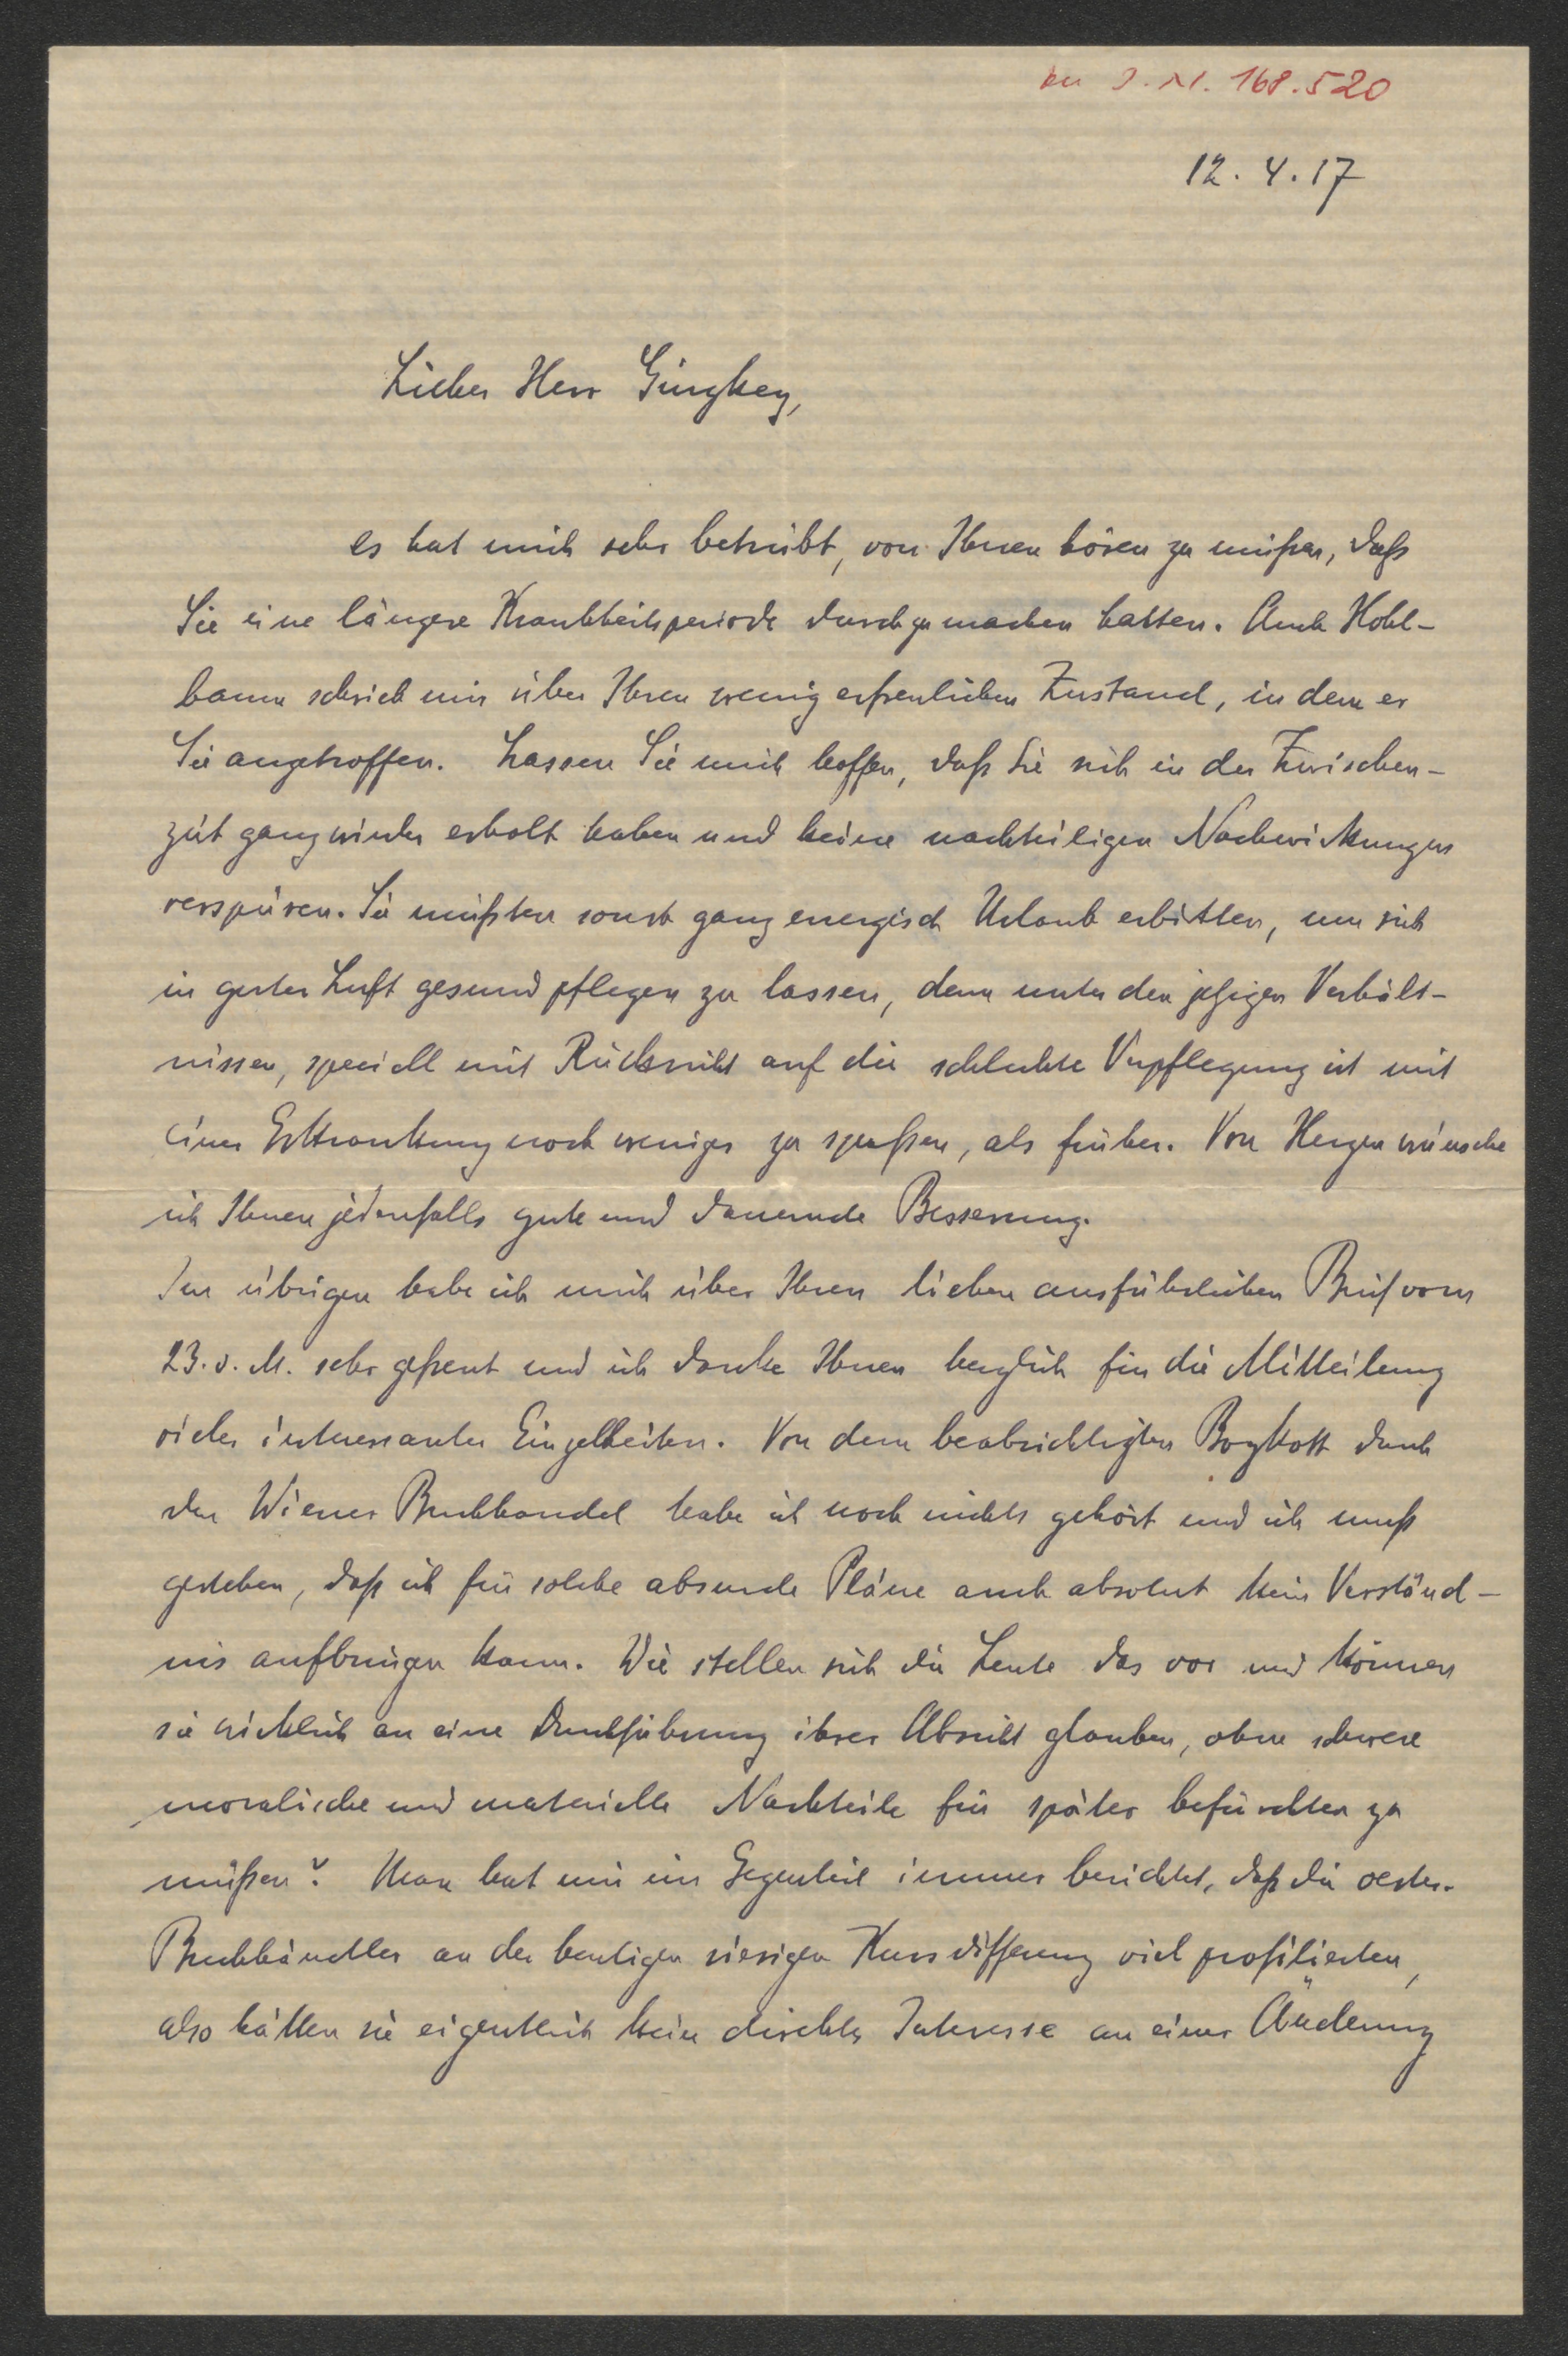 zu I.N. 168.520
12.4.17
Lieber Herr Ginzkey,
es hat mich sehr betrübt, von Ihnen hören zu müßen, daß
Sie eine längere Krankheitsperiode durchzumachen hatten. Auch Hohl-
baum schrieb mir über Ihren wenig erfreulichen Zustand, in dem er
Sie angetroffen. Lassen Sie mich hoffen, daß Sie sich in der Zwischen-
zeit ganz wieder erholt haben und keine nachteiligen Nachwirkungen
verspüren. Sie müßten sonst ganz energisch Urlaub erbitten, um sich
in guter Luft gesund pflegen zu lassen, denn unter den jetzigen Verhält-
nissen, speciell mit Rücksicht auf die schlechte Verpflegung ist mit
einer Erkrankung noch weniger zu spaßen, als früher. Von Herzen wünsche
ich Ihnen jedenfalls gute und dauernde Besserung.
Im übrigen habe ich mich über Ihren lieben ausführlichen Brief vom
23. v. M. sehr gefreut und ich danke Ihnen herzlich für die Mitteilung
vieler interessanter Einzelheiten. Von dem beabsichtigten Boykott durch
den Wiener Buchhandel habe ich noch nichts gehört und ich muß
gestehen, daß ich für solche absurde Pläne auch absolut kein Verständ-
nis aufbringen kann. Wie stellen sich die Leute das vor und können
sie wirklich an eine Durchführung ihrer Absicht glauben, ohne schwere
moralische und materielle Nachteile für später befürchten zu
müßen? Man hat mir im Gegenteil immer berichtet, daß die oester.
Buchhändler an der heutigen riesigen Kursdifferenz viel profitierten,
also hätten sie eigentlich kein direktes Interesse an einer Änderung